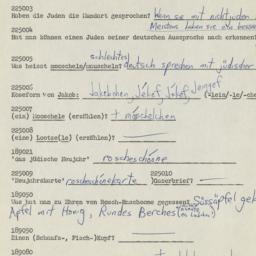 225003
Haben die Juden die Mundart gesprochen? Wenn sie mit nichtjuden
Meistens haben sie
225004
Hat man können einen Juden seiner deutschen Aussprache nach erkennen?
225005 schlechtes
Was heisst mooscheln/mauscheln? deutsch sprechen mit jüdischer
225006
Koseform von Jakob: Jekef (-lein/-le/-che
225007
(ein) Mooschele (erzählen)? + móschelchen
225008
(eine) Lootse(le) (erzählen)?
189021
"das jüdische Neujahr" roscheschone
225009 225010
"Neujahrskarte" roscheschönekarte )Gozerbrief?
189050
Was hat man zu Ehren von Rosch-Haschoone gegessen? Süssäpfel
Apfel mit Honig, Rundes Berches
189050
Einen (Schaafs-, Fisch-)Kopf?
189080